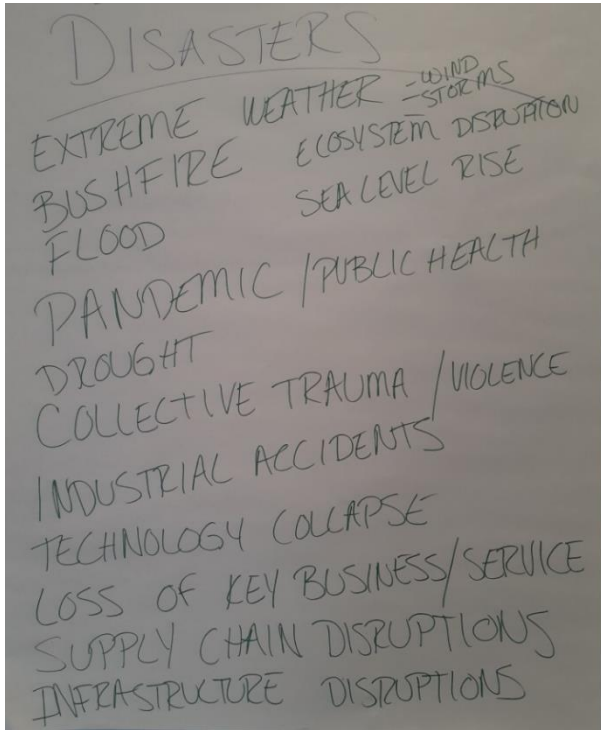 DISASTERS
EXTREME WEATHER - WIND
- STORMS
BUSHFIRE ECOSYSTEM DISRUPTION
FLOOD SEA LEVEL RISE
PANDEMIC / PUBLIC HEALTH
DROUGHT
COLLECTIVE TRAUMA / VIOLENCE
INDUSTRIAL ACCIDENTS
TECHNOLOGY COLLAPSE
LOSS OF KEY BUSINESS/SERVICE
SUPPLY CHAIN DISRUPTIONS
INFRASTRUCTURE DISRUPTIONS